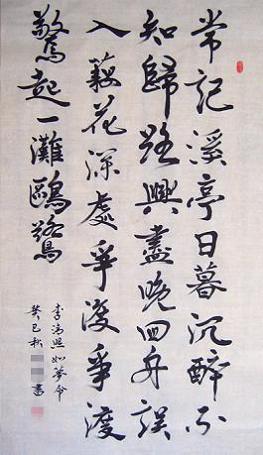 常記溪亭日暮沉醉不
知歸路興盡晚回舟誤
入藕花深處爭渡爭渡
驚起一灘鷗鷺
李清照如夢令
癸巳秋書